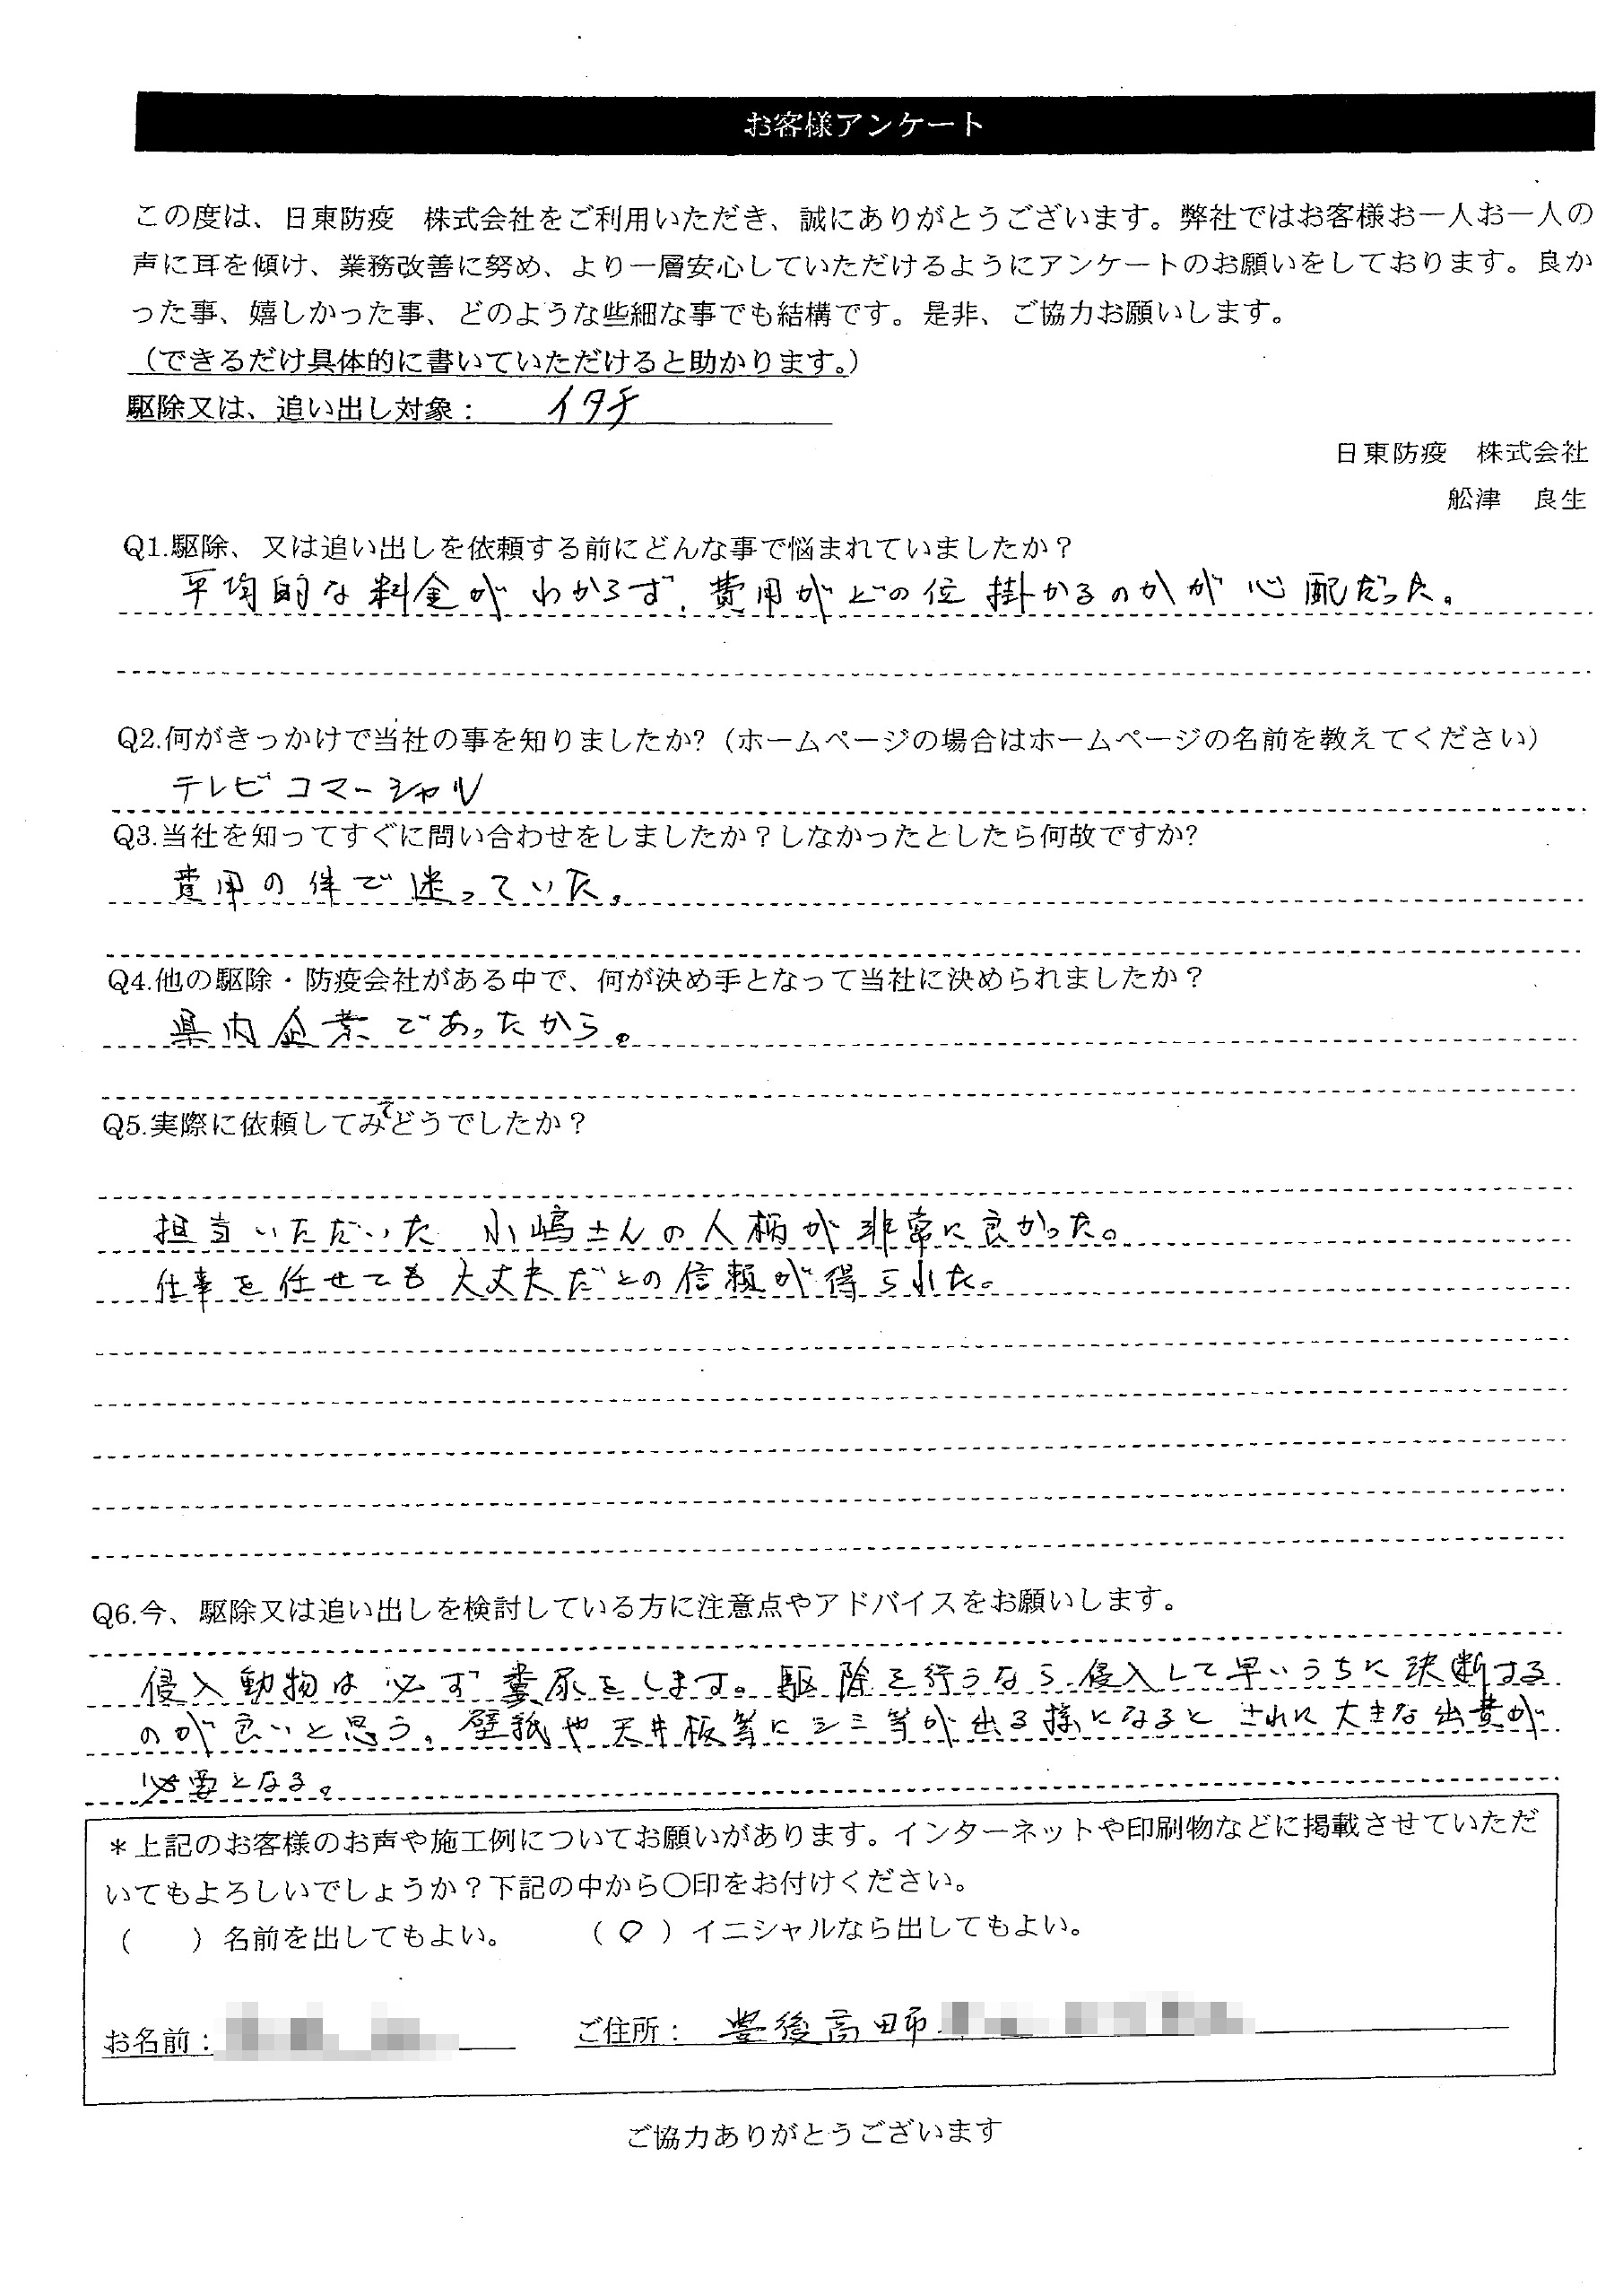 お客様アンケート
この度は、日東防疫　株式会社をご利用いただき、誠にありがとうございます。弊社ではお客様お一人お一人の
声に耳を傾け、業務改善に努め、より一層安心していただけるようにアンケートのお願いをしております。良か
った事、嬉しかった事、どのような些細な事でも結構です。是非、ご協力お願いします。
（できるだけ具体的に書いていただけると助かります。）
駆除又は、追い出し対象：　イタチ
日東防疫　株式会社
舩津　良生
Q1.駆除、又は追い出しを依頼する前にどんな事で悩まれていましたか？
平均的な料金がわからず、費用がどの位掛かるのかが心配だった。
Q2.何がきっかけで当社の事を知りましたか?（ホームページの場合はホームページの名前を教えてください）
テレビコマーシャル
Q3.当社を知ってすぐに問い合わせをしましたか？しなかったとしたら何故ですか?
費用の件で迷っていた。
Q4.他の駆除・防疫会社がある中で、何が決め手となって当社に決められましたか？
県内企業であったから。
Q5.実際に依頼してみてどうでしたか？
担当いただいた　小嶋さんの人柄が非常に良かった。
仕事を任せても大丈夫だとの信頼が得られた。
Q6.今、駆除又は追い出しを検討している方に注意点やアドバイスをお願いします。
侵入動物は必ず糞尿をします。駆除を行うなら、侵入して早いうちに決断する
のが良いと思う。壁紙や天井板等にシミ等が出る様になるとされに大きな出費が
必要となる。
＊上記のお客様のお声や施工例についてお願いがあります。インターネットや印刷物などに掲載させていただ
いてもよろしいでしょうか？下記の中から〇印をお付けください。
（　　）名前を出してもよい。　　（〇）イニシャルなら出してもよい。
お名前：　　ご住所：　豊後高田市
ご協力ありがとうございます